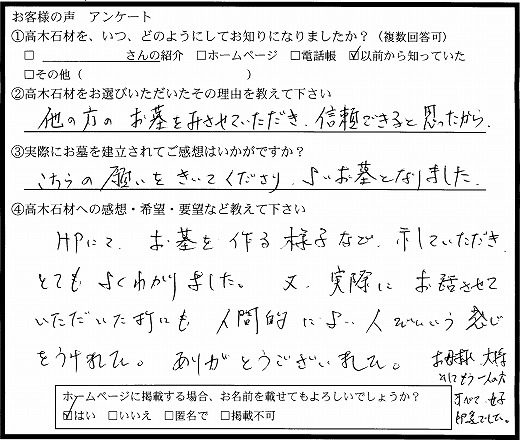 お客様の声　アンケート
①高木石材を、いつ、どのようにしてお知りになりましたか？（複数回答可）
□＿＿＿＿＿＿さんの紹介　□ホームページ　□電話帳　☑以前から知っていた
□その他（　　　　　　　　　　　　）
②高木石材をお選びいただいたその理由を教えて下さい
他の方の お墓をみさせていただき、信頼できると思ったから.
③実際にお墓を建立されてご感想はいかがですか？
こちらの願いをきいてくださり、よいお墓となりました.
④高木石材への感想・希望・要望など教えて下さい
HPにて、お墓を作る様子など、示していただき
とても よくわかりました。 又、実際に お話させて
いただいた折にも 人間的に よい人だという 感じ
をうけました。 ありがとうございました。
お母様、大将
そしてもう一人の方
すべて 好
印象でした。
ホームページに掲載する場合、お名前を載せてもよろしいでしょうか？
☑はい　□いいえ　□匿名で　□掲載不可